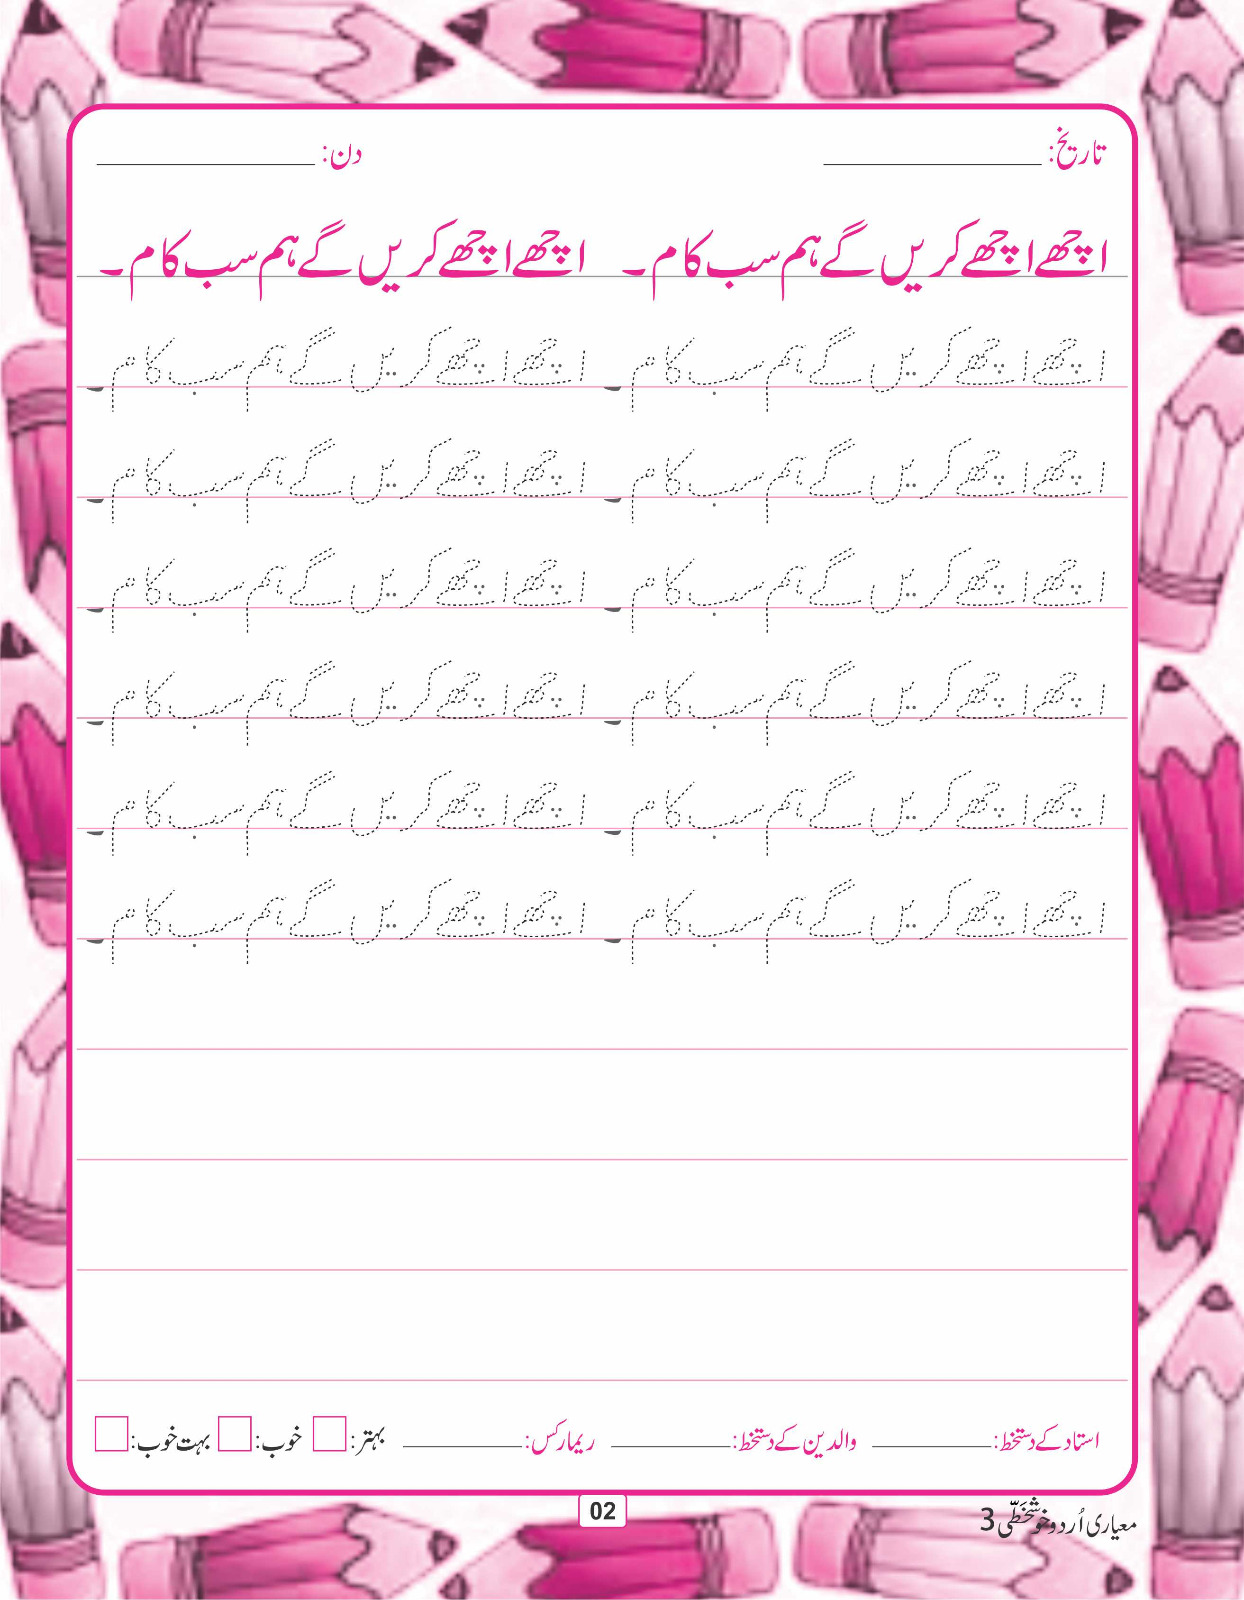 تاریخ: ____________ دن: ____________
اچھے اچھے کریں گے ہم سب کام۔ اچھے اچھے کریں گے ہم سب کام۔
اچھے اچھے کریں گے ہم سب کام۔ اچھے اچھے کریں گے ہم سب کام۔
اچھے اچھے کریں گے ہم سب کام۔ اچھے اچھے کریں گے ہم سب کام۔
اچھے اچھے کریں گے ہم سب کام۔ اچھے اچھے کریں گے ہم سب کام۔
اچھے اچھے کریں گے ہم سب کام۔ اچھے اچھے کریں گے ہم سب کام۔
اچھے اچھے کریں گے ہم سب کام۔ اچھے اچھے کریں گے ہم سب کام۔
اچھے اچھے کریں گے ہم سب کام۔ اچھے اچھے کریں گے ہم سب کام۔
استاد کے دستخط: ________ والدین کے دستخط: ________ ریمارکس: ________ بہتر: خوب: بہت خوب:
معیاری اُردو خوشخطّی 3
02